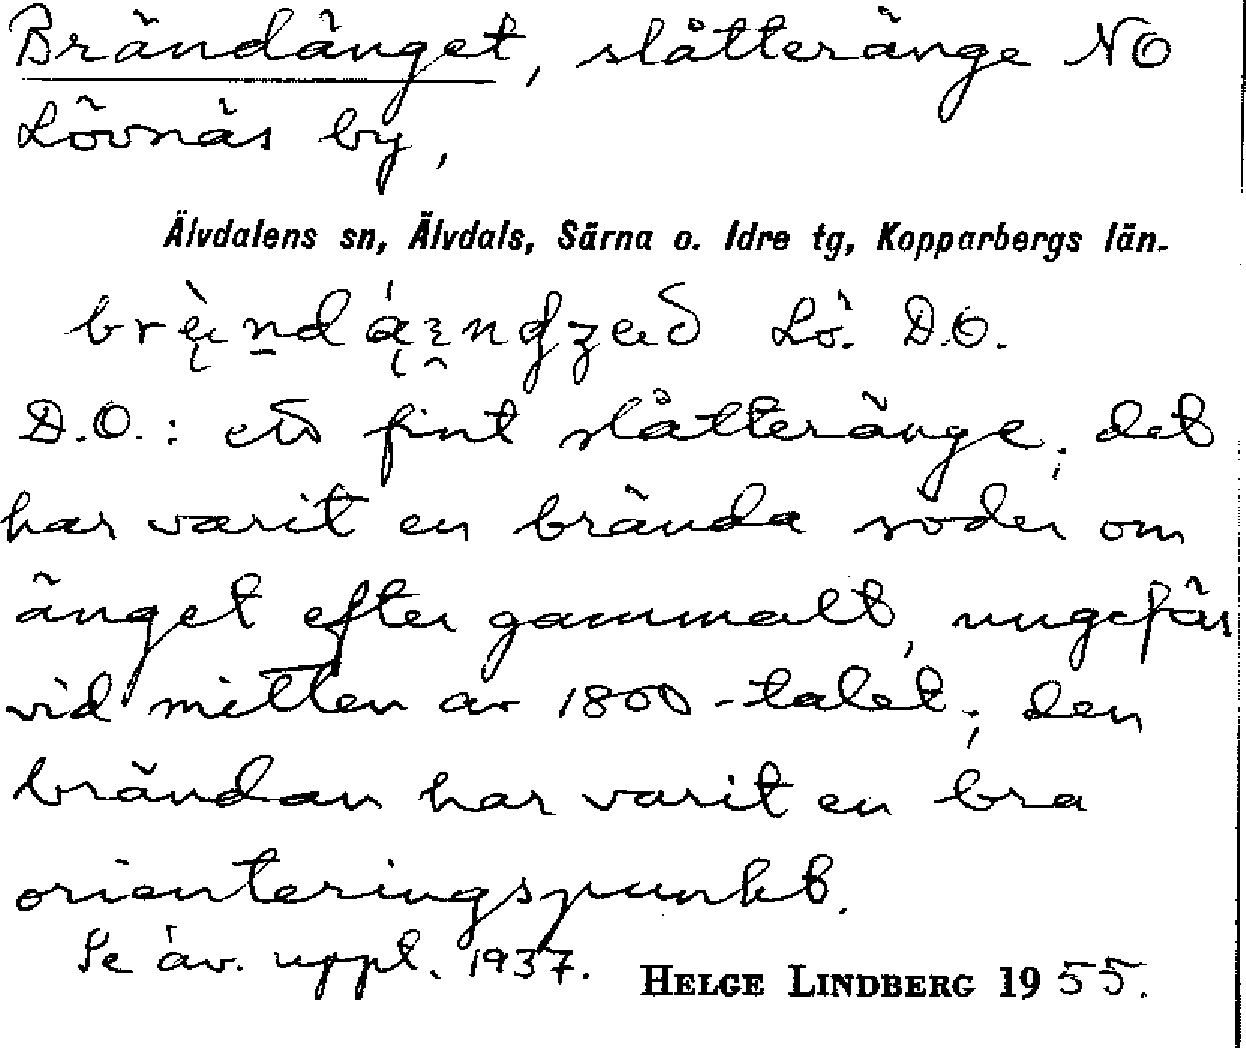 Brändänget, slåtteränge NO
Lövnäs by,
Älvdalens sn, Älvdals, Särna o. Idre tg, Kopparbergs län.
Lö. D.O.
D.O.: ett fint slåtteränge; det
har varit en brända söder om
änget efter gammalt, ungefär
vid mitten av 1800-talet; den
brändan har varit en bra
orienteringspunkt.
Se äv. uppt. 1937. HELGE LINDBERG 1955.